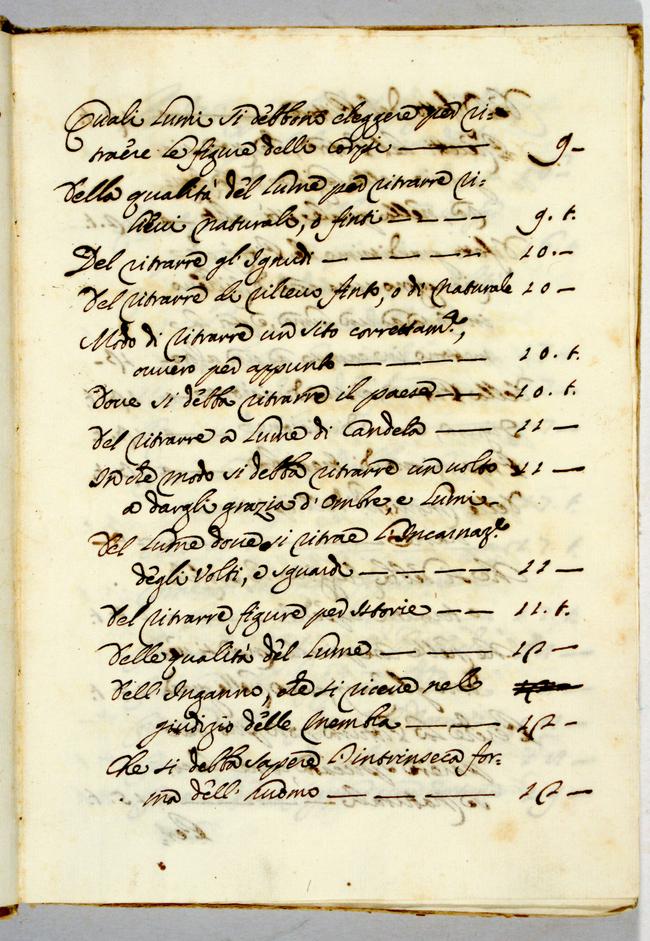 Quali Lumi si debbono eleggere per ri-
traere le figure delli Corpi — 9 —
Della qualità del Lume per ritrarre ri-
lievi naturali, o finti — — — — 9. t.
Del ritrarre gl'Ignudi — — — — — 10. —
Del ritrarre di rilievo finto, o di Naturale 10 —
Modo di ritrarre un sito correttam.e,
ovvero per appunto — — — — 10. t.
Dove si debba ritrarre il paese — — 10. t.
Del ritrarre a Lume di Candela — — 11 —
In che modo si debba ritrarre un volto 11 —
a dargli grazia d'Ombre, e Lumi —
Del Lume dove si ritrae l'Incarnaz.e
degli Volti, e sguardi — — — — 11 —
Del ritrarre figure per Istorie — — 11. t.
Delle qualità del Lume — — — 12 —
Dell'Inganno, che si riceve nel
giudizio delle Membra — — — 12 —
Che si debba sapere l'intrinseca for-
ma dell'huomo — — — — 12 —